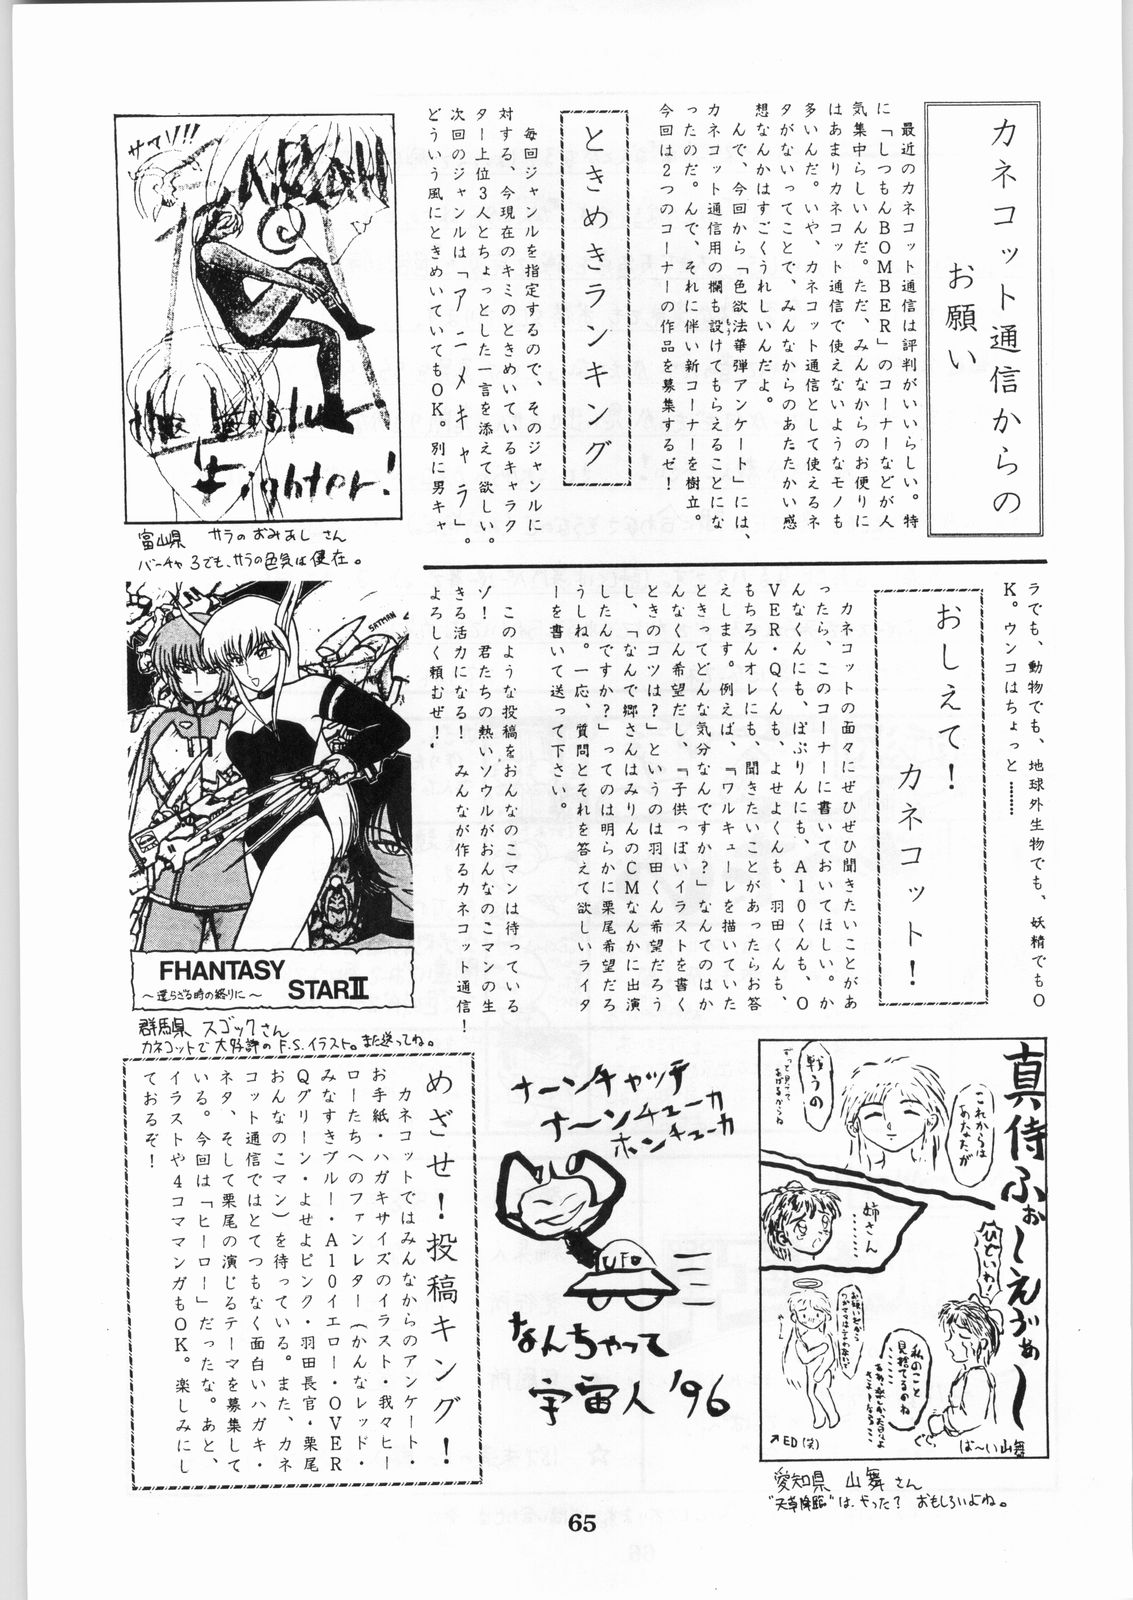 カネコット通信からの
お願い
最近のカネコット通信は評判がいいらしい。特
に「しつもんBOMBER」のコーナーなどが人
気集中らしいんだ。ただ、みんなからのお便りに
はあまりカネコット通信で使えないようなモノも
多いんだ。いや、カネコット通信として使えるネ
タがないってことで、みんなからのあたたかい感
想なんかはすごくうれしいんだよ。
んで、今回から「色欲法華弾アンケート」には、
カネコット通信用の欄も設けてもらえることにな
ったのだ。んで、それに伴い新コーナーを樹立。
今回は2つのコーナーの作品を募集するぜ!
ときめきランキング
毎回ジャンルを指定するので、そのジャンルに
対する、今現在のキミのときめいているキャラク
ター上位3人とちょっとした一言を添えて欲しい。
次回のジャンルは「アニメキャラ」。
どういう風にときめいていてもOK。別に男キャ
ラでも、動物でも、地球外生物でも、妖精でもO
K。ウンコはちょっと………
おしえて!
カネコット!
カネコットの面々にぜひぜひ聞きたいことがあ
ったら、このコーナーに書いておいてほしい。か
んなくんにも、ぽぷりんにも、A10くんも、O
VER・Qくんも、よせよくんも、羽田くんも、
もちろんオレにも、聞きたいことがあったらお答
えします。例えば、『ワルキューレを描いていた
ときってどんな気分なんですか?』なんてのはか
んなくん希望だし、『子供っぽいイラストを書く
ときのコツは?』というのは羽田くん希望だろう
し、「なんで郷さんはみりんのCMなんかに出演
したんですか?」ってのは明らかに栗尾希望だろ
うしね。一応、質問とそれを答えて欲しいライタ
ーを書いて送って下さい。
このような投稿をおんなのこマンは待っている
ゾ!君たちの熱いソウルがおんなのこマンの生
きる活力になる!みんなが作るカネコット通信!
よろしく頼むぜ!
サマソ!!
Fighter!
富山県 サラのおみあし さん
バーチャ3でも、サラの色気は健在。
SATMAN
FHANTASY
STARⅡ
〜還らざる時の終りに〜
群馬県 スゴックさん
カネコットで大好評のF.S.イラスト。また送ってね。
めざせ!投稿キング!
カネコットではみんなからのアンケート・
お手紙・ハガキサイズのイラスト・我々ヒー
ローたちへのファンレター(かんなレッド・
みなすきブルー・A10イエロー・OVER
Qグリーン・よせよピンク・羽田長官・栗尾
おんなのこマン)を待っている。また、カネ
コット通信ではとてつもなく面白いハガキ・
ネタ、そして栗尾の演じるテーマを募集して
いる。今回は「ヒーロー」だったな。あと、
イラストや4コママンガもOK。楽しみにし
ておるぞ!
ナーンチャッテ
ナーンチューカ
ホンチューカ
UFO
なんちゃって
宇宙人 '96
真侍ふぉーえヴぁー
これからは
あなたが
戦うの
ずっと見てて
あげるからね
姉さん
………
ひどいわ!
私のこと
見捨てるのね
ぐぐ
↗ED(笑)
ば〜い山舞
愛知県 山舞さん
"天草降臨"は、やった? おもしろいよね。
65